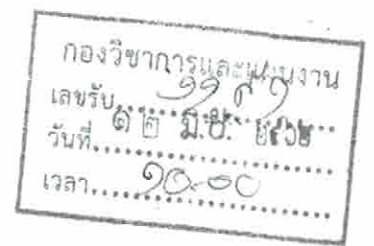 กองวิชาการและแผนงาน
เลขรับ
วันที่ ๑๒ มิ.ย. ๒๕๖๒
เวลา ๑๐.๐๐